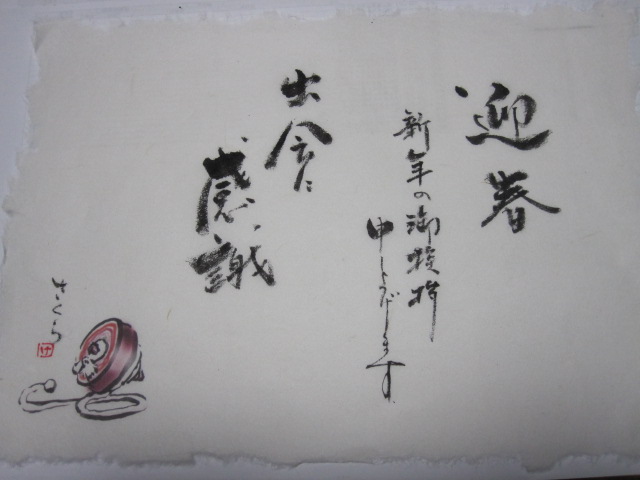 迎春
新年の御挨拶
申し上げます
出会に
感謝
さくら